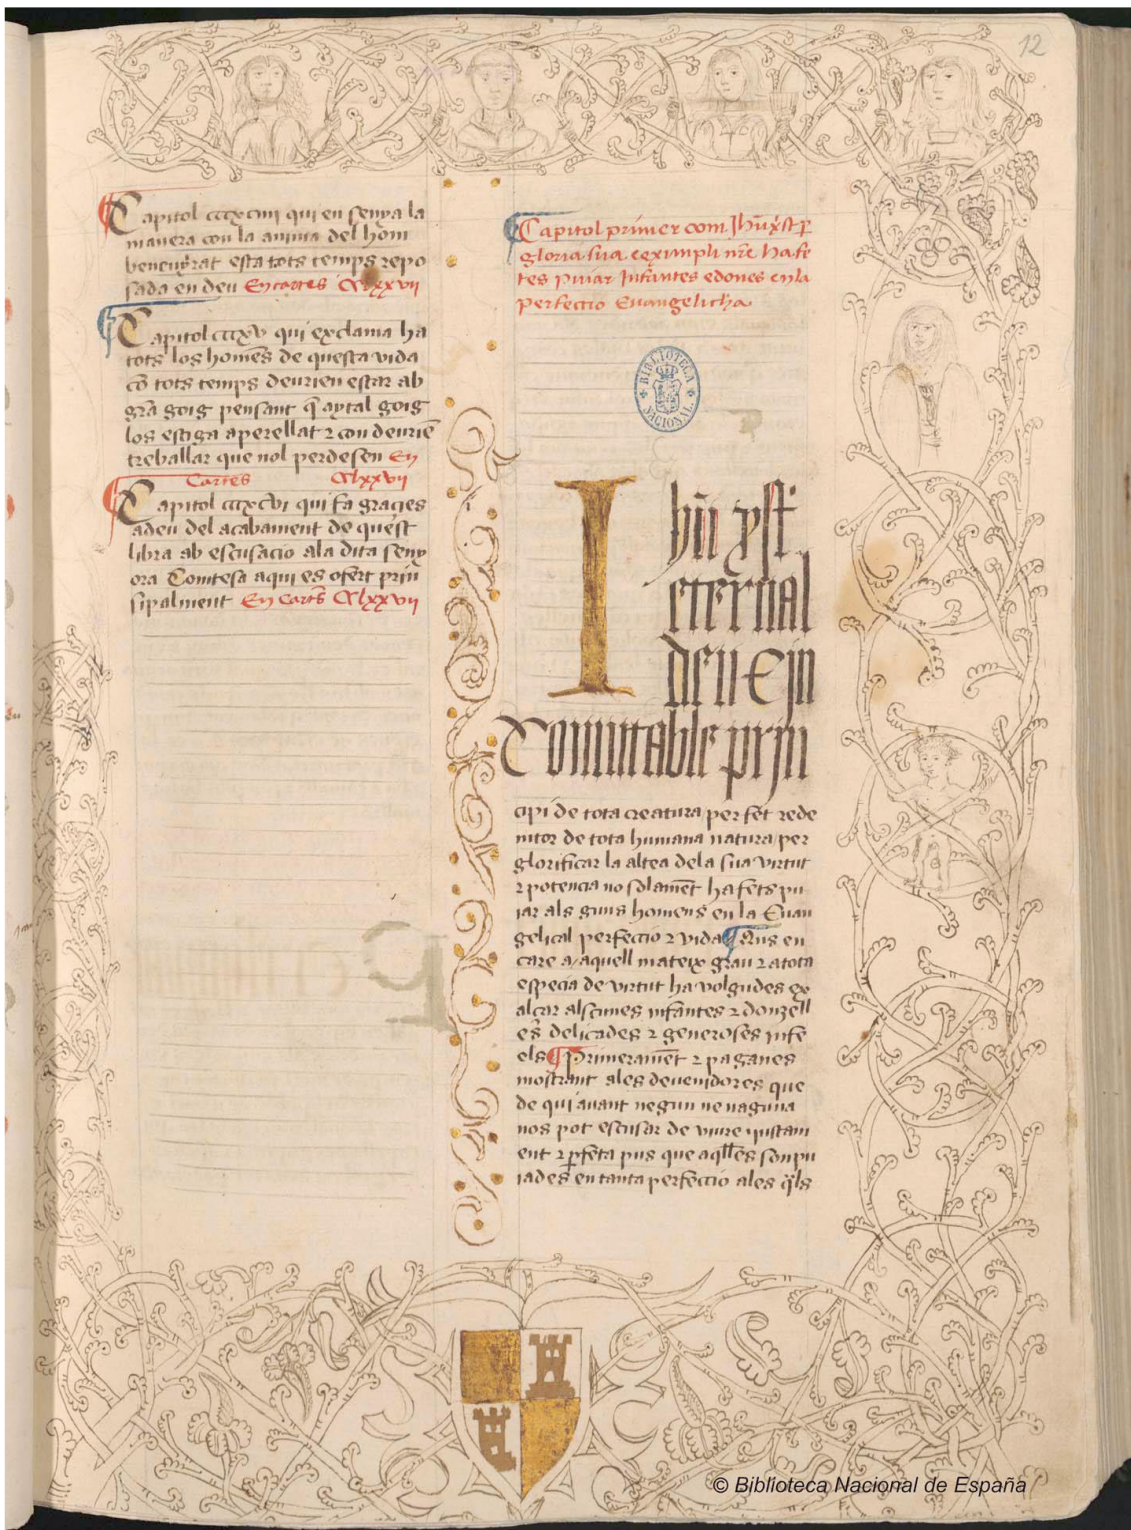 12
Capitol cccxciiii qui en senya la
manera con la anima del hom
benenyrat esta tots temps repo
sada en deu En cartes CClxxvii
Capitol cccxcv qui exclama ha
tots los homēs de questa vida
cō tots temps deurien estar ab
grā goig pensant q̄ aytal goig
los estiga aperellat ⁊ con deuriē
treballar que nol perdesen En
Cartes CClxxvii
Capitol cccxcvi qui fa gracies
adeu del acabament de quest
libra ab escusacio ala dita seny
ora Comtesa aqui es ofert prin
sipalment En Carts CClxxvii
Capitol primer com Jhū xp̄st per
gloria sua e eximpli nr̄e ha fe
tes puiar Infantes e dones en la
perfeccio Euangelicha
BIBLIOTECA NACIONAL
Ihū xp̄st
eternal
deu E jn
Comutable prjn
cipi de tota creatura per fet rede
mtor de tota humana natura per
glorificar la altea dela sua virtut
⁊ potencia no solamēt ha fets pu
iar als grans homens en la Euan
gelical perfeccio ⁊ vida ¶ Ans en
care a aquell mateix grau ⁊ a tota
especia de virtut ha volgudes ex
alcar alscunes infantes ⁊ donzell
es delicades ⁊ generoses infe
els ¶ Primeramēt ⁊ paganes
mostrant ales deuenidores que
de qui auant negun ne naguna
nos pot escusar de viure iustam
ent ⁊ p̄feta pus que aq̄lles son pu
iades en tanta perfeccio ales q̄ls
© Biblioteca Nacional de España